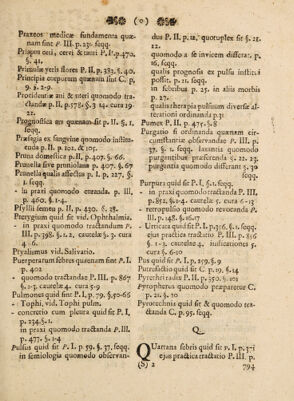 ( o )
Praxeos medicæ fundamenta quæ-
nam sint P. III. p. 23. seqq.
Priapus ceti, cervi & tauri P. P. p. 470.
§. 41.
Primulæ veris flores P. II. p. 383. §. 40.
Principia corporum quænam sint C.
p. 9. §. 2-9.
Procidentiæ ani & uteri quomodo tra-
ctandæ P. II. p. 578. §. 34. cura 19
22.
Prognostica ars quænam sit P. II. §. 1.
seqq.
Præsagia ex sanguine quomodo institu-
enda P. II. p. 102. & 105.
Pruna domestica P. II. p. 407. §. 66.
Prunella sive proniolana p. 407. §. 67
Prunella qualis affectus p. I. p. 227. §.
1. seqq.
- in praxi quomodo curanda. p. III.
p. 460. §. 1-4.
Psyllii semen p. II. p. 420. §. 28.
Pterygium quid sit vid. Ophthalmia.
- in praxi quomodo tractandum P.
III. p. 398. §. 1. 2. cautelæ §. 7. cura
4 6.
Ptyalismus vid. Salivatio.
Puerperarum febres quænam sint P. I.
p. 402
- quomodo tractandæ P. III. p. 867
§. 1-3. cautelæ 4. cura 5-9
Pulmones quid sint P. I. p. 79. §. 50-66
- Tophi, vid. Tophi pulm.
- concretio cum pleura quid sit P. I,
p. 234. §. 1.
in praxi quomodo tractanda P. III.
p. 477. §. 1-4
Pulsus quid sit P. I. p 59. §. 37. seqq.
in semiologia quomodo observan-
dus P. II. p. 12. quotuplex sit §. 21.
22.
quomodo a se invicem differat. p.
16. seqq.
qualis prognosis ex pulsu institui
possit. p. 21. seqq.
in febribus p. 25. in aliis morbis
p. 27.
qualis therapia pulsuum diversæ al-
terationi ordinanda p. 31
Pumex P. II. p. 475. §. 8
Purgatio si ordinanda quænam cir-
cumstantiæ observandæ P. III. p.
37. §. 1. seqq. laxantia quomodo
purgantibus præferenda §. 22. 23.
purgantia quomodo differant §. 39
seqq.
Purpura quid sit P. I. §. 1. seqq.
- in praxi quomodo tractanda P. III.
p. 852. §. 1-4. cautelæ 5. cura 6-13
- retropulsio quomodo revocanda P.
III. p. 148. §. 16. 17
- Urticata quid sit P. I. p. 316. §. 1. seqq.
ejus practica tractatio P. III. p. 816
§. 1-3. cautelæ 4. infusationes 5.
cura §. 6-10
Pus quid sit P. I. p. 259. §. 9
Putrefactio quid sit C. p. 19. §. 14
Pyrethri radix P. II. p. 350. §. 105
Pyrophorus quomodo præparetur C.
p. 21. §. 20
Pyrotechnia quid sit & quomodo tra-
ctanda C. p. 95. seqq.
Q.
Quartana febris quid sit P. I. p. 371
ejus practica tractatio P. III. p.
(b) 2
794